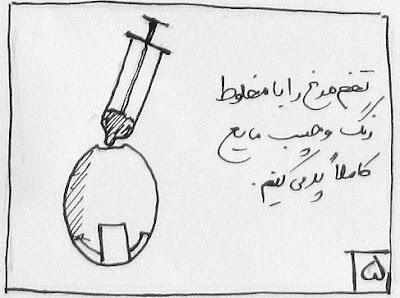 تخم مرغ را با مخلوط
رنگ و چسب مایع
کاملاً پر می کنیم.
۵